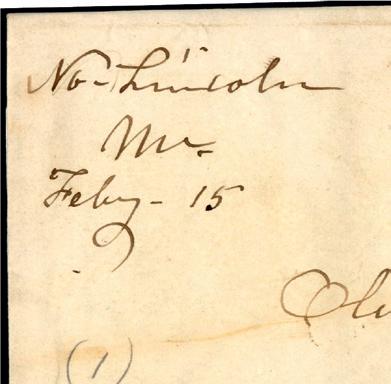 No- Lincoln
Me.
Feby - 15
(1)